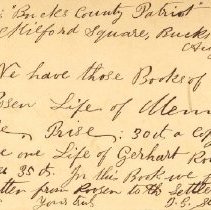 "Bucks County Patriot"
Milford Square, Bucks
Au
We have those Books of
osen Life of Menn
le Prise: 30ct a cop
e one Life of Gerhart Ro
e 35 ct. In this Book we
tten from Roosen to the Settle
Yours truly